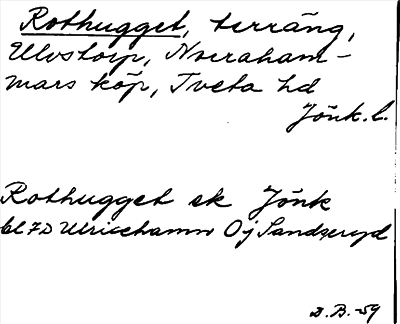 Rothugget, terräng,
Ulvstorp, Norraham-
mars köp, Tveta hd
Jönk. l.
Rothugget sk Jönk
bl 7D Ulricehamn Öj Sandseryd
B. B. -59